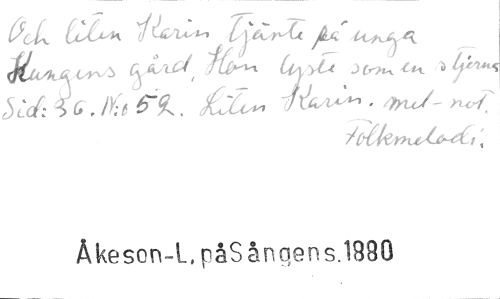 Och liten Karin tjänte på unga
Kungens gård, Hon lyste som en stjerna
Sid: 36. N:o 52. Liten Karin. mel-not.
Folkmelodi.
Åkeson-L, påSångens.1880